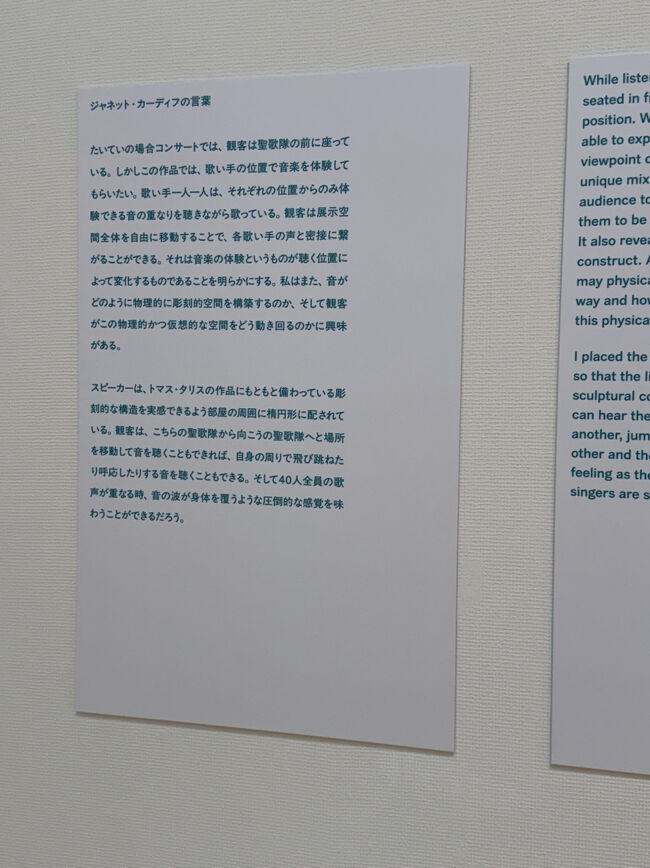 ジャネット・カーディフの言葉
たいていの場合コンサートでは、観客は聖歌隊の前に座って
いる。しかしこの作品では、歌い手の位置で音楽を体験して
もらいたい。歌い手一人一人は、それぞれの位置からのみ体
験できる音の重なりを聴きながら歌っている。観客は展示空
間全体を自由に移動することで、各歌い手の声と密接に繋
がることができる。それは音楽の体験というものが聴く位置に
よって変化するものであることを明らかにする。私はまた、音が
どのように物理的に彫刻的空間を構築するのか、そして観客
がこの物理的かつ仮想的な空間をどう動き回るのかに興味
がある。
スピーカーは、トマス・タリスの作品にもともと備わっている彫
刻的な構造を実感できるよう部屋の周囲に楕円形に配されて
いる。観客は、こちらの聖歌隊から向こうの聖歌隊へと場所
を移動して音を聴くこともできれば、自身の周りで飛び跳ねた
り呼応したりする音を聴くこともできる。そして40人全員の歌
声が重なる時、音の波が身体を覆うような圧倒的な感覚を味
わうことができるだろう。
While liste
seated in f
position. W
able to exp
viewpoint o
unique mix
audience to
them to be
It also revea
construct. A
may physica
way and how
this physica
I placed the
so that the li
sculptural co
can hear the
another, jum
other and the
feeling as the
singers are s